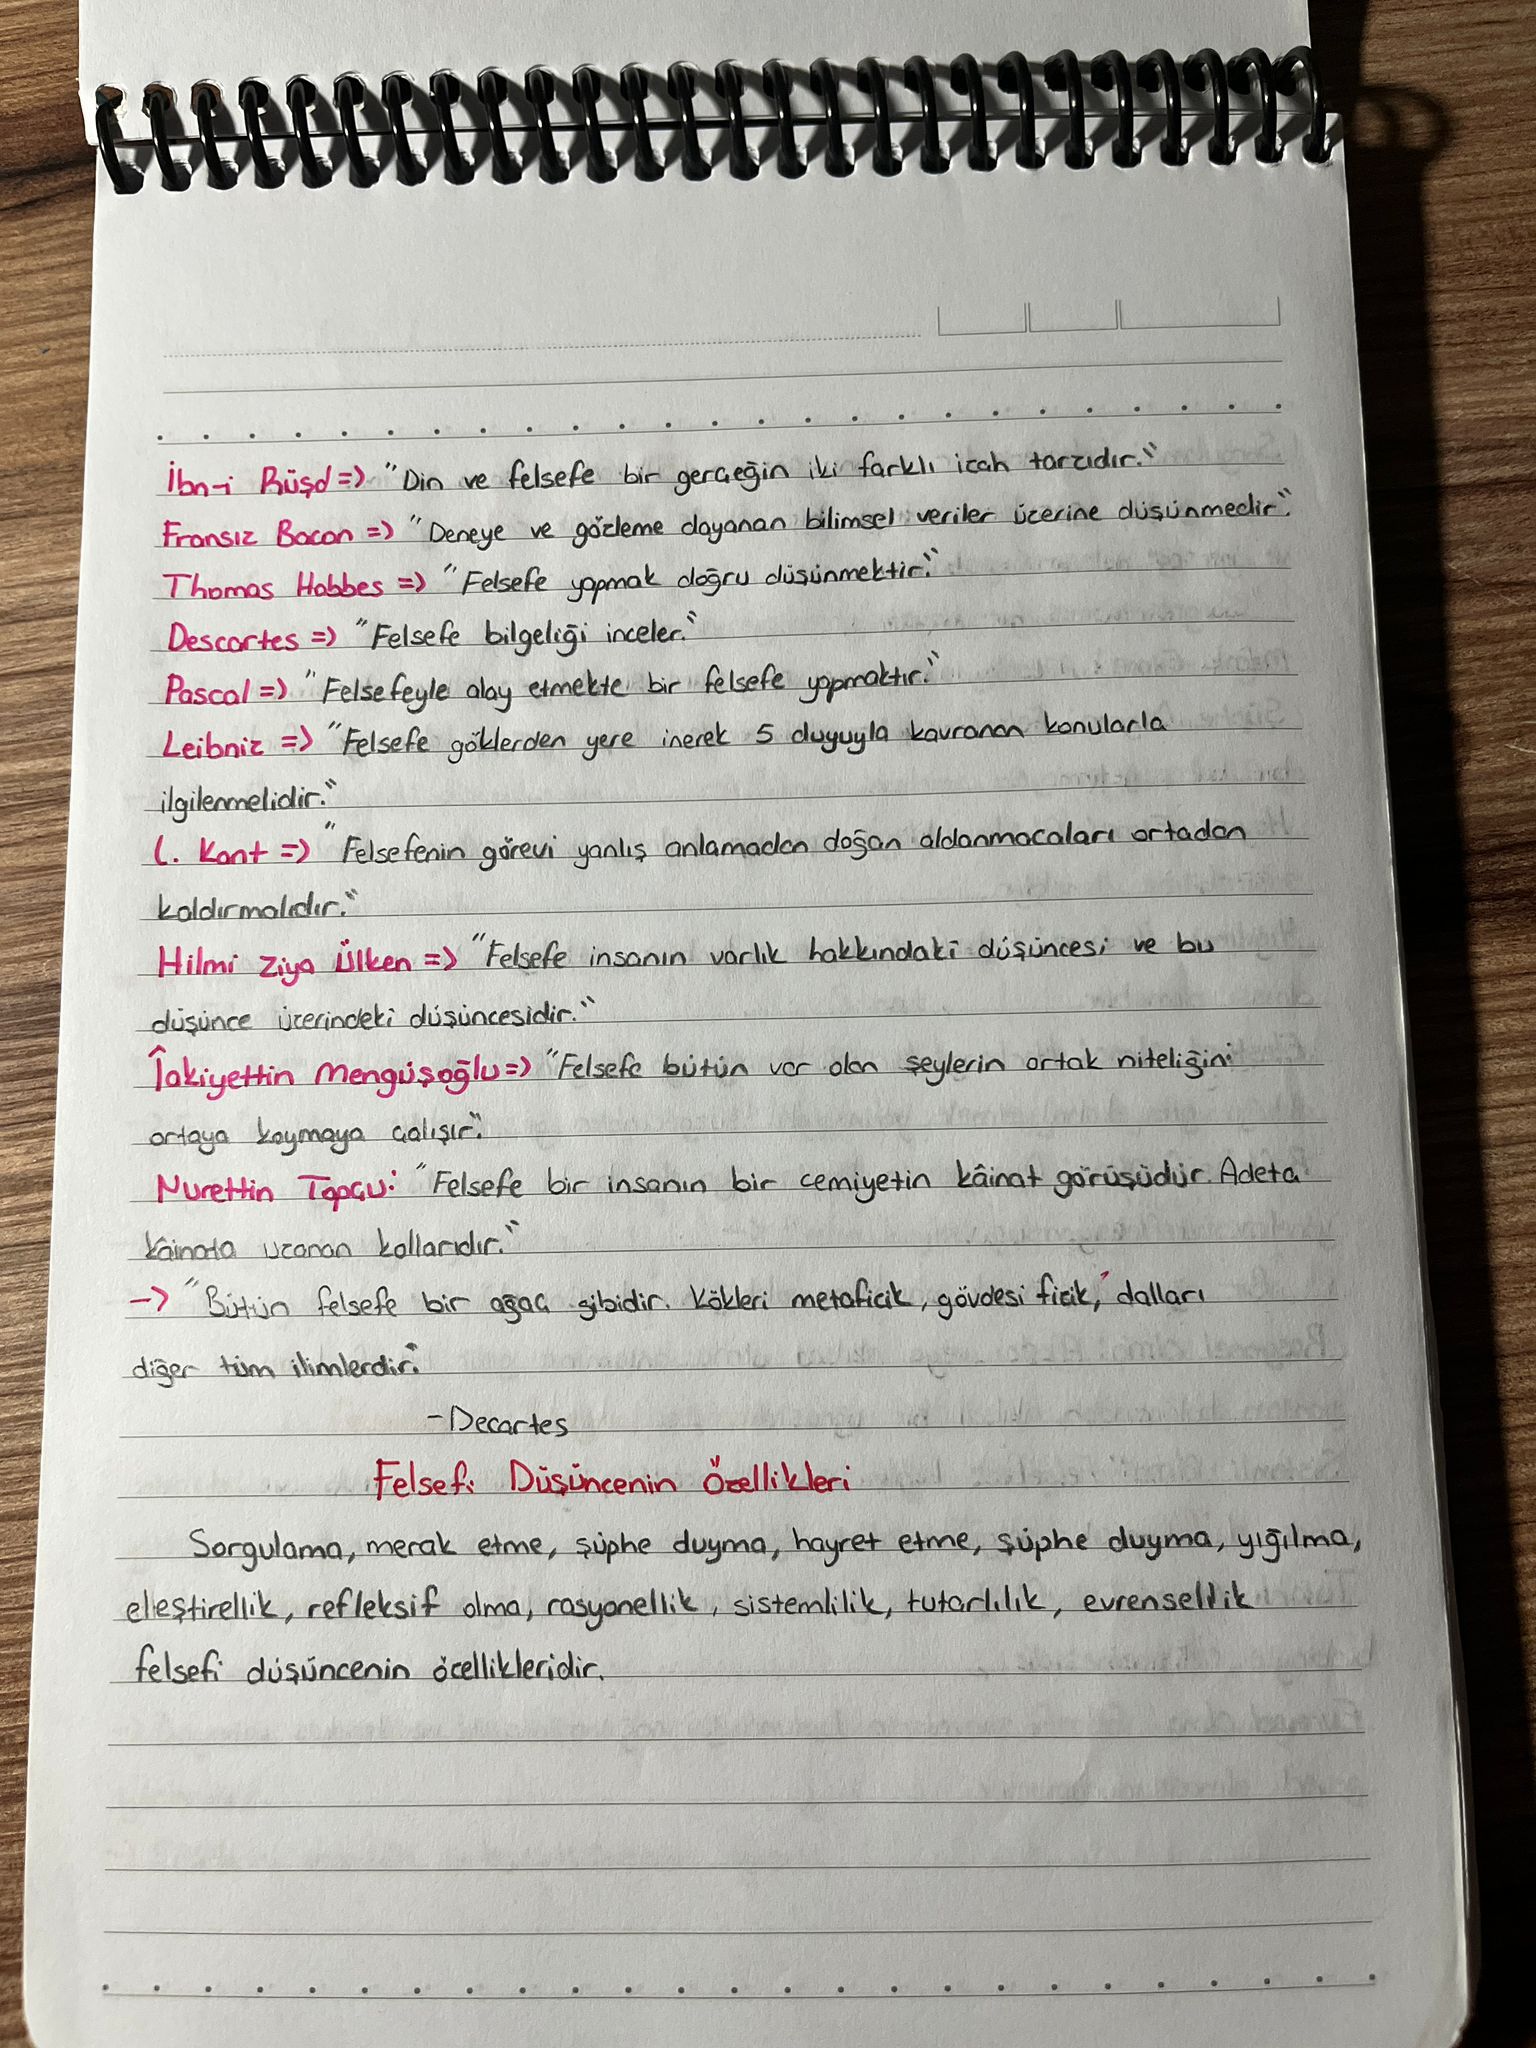 İbn-i Rüşd => "Din ve felsefe bir gerçeğin iki farklı izah tarzıdır."
Fransız Bacon => "Deneye ve gözleme dayanan bilimsel veriler üzerine düşünmedir."
Thomas Hobbes => "Felsefe yapmak doğru düşünmektir."
Descartes => "Felsefe bilgeliği inceler."
Pascal => "Felsefeyle alay etmekte bir felsefe yapmaktır."
Leibniz => "Felsefe göklerden yere inerek 5 duyuyla kavranan konularla
ilgilenmelidir."
I. Kant => "Felsefenin görevi yanlış anlamadan doğan aldanmacaları ortadan
kaldırmalıdır."
Hilmi Ziya Ülken => "Felsefe insanın varlık hakkındaki düşüncesi ve bu
düşünce üzerindeki düşüncesidir."
Takiyettin Mengüşoğlu => "Felsefe bütün var olan şeylerin ortak niteliğini
ortaya koymaya çalışır."
Nurettin Topçu: "Felsefe bir insanın bir cemiyetin kâinat görüşüdür. Adeta
kâinata uzanan kollarıdır."
-> "Bütün felsefe bir ağaç gibidir. Kökleri metafizik, gövdesi fizik, dalları
diğer tüm ilimlerdir."
- Decartes
Felsefi Düşüncenin Özellikleri
Sorgulama, merak etme, şüphe duyma, hayret etme, şüphe duyma, yığılma,
eleştirellik, refleksif olma, rasyonellik, sistemlilik, tutarlılık, evrensellik
felsefi düşüncenin özellikleridir.